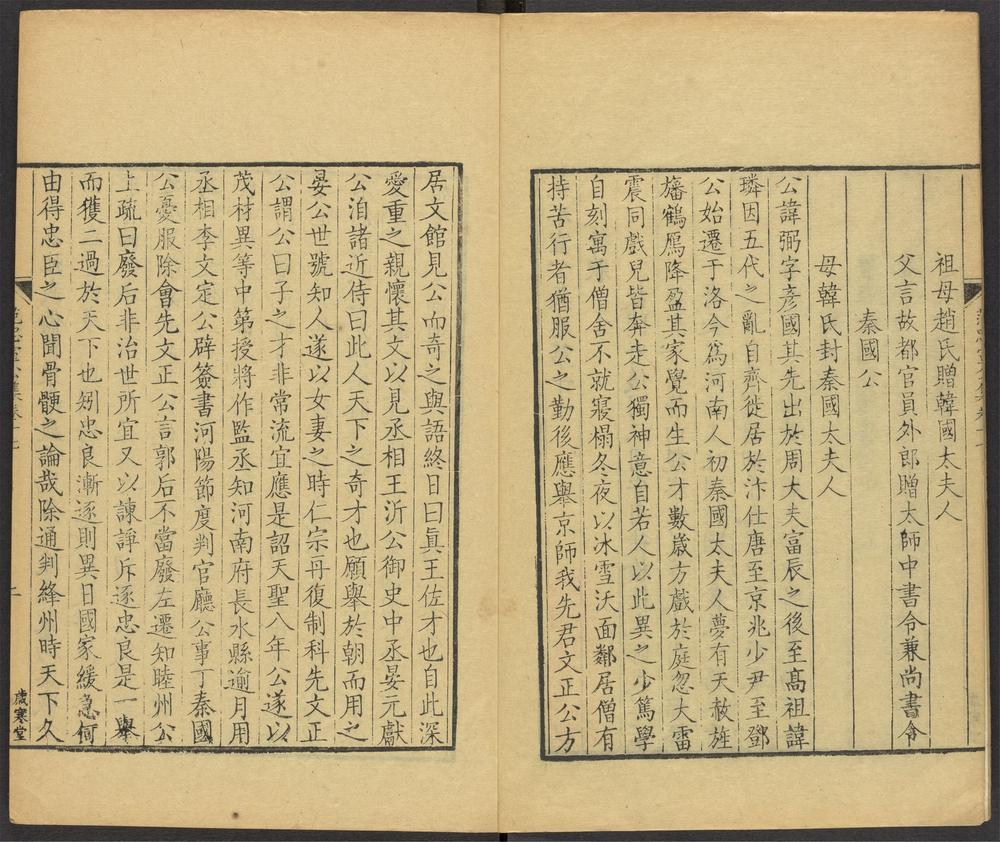 祖母趙氏贈韓國太夫人
父言故都官員外郎贈太師中書令兼尚書令
秦國公
母韓氏封秦國太夫人
公諱弼字彥國其先出於周大夫富辰之後至高祖諱
璘因五代之亂自齊徙居於汴仕唐至京兆少尹至鄧
公始遷于洛今為河南人初秦國太夫人夢有天赦旌
旛鶴鴈降盈其家覺而生公才數歲方戲於庭忽大雷
震同戲兒皆奔走公獨神意自若人以此異之少篤學
自刻寓于僧舍不就寢榻冬夜以冰雪沃面鄰居僧有
持苦行者猶服公之勤後應舉京師我先君文正公方
居文館見公而奇之與語終日曰眞王佐才也自此深
愛重之親懷其文以見丞相王沂公御史中丞晏元獻
公洎諸近侍曰此人天下之奇才也願舉於朝而用之
晏公世號知人遂以女妻之時仁宗再復制科先文正
公謂公曰子之才非常流宜應是詔天聖八年公遂以
茂材異等中第授將作監丞知河南府長水縣逾月用
丞相李文定公辟簽書河陽節度判官廳公事丁秦國
公憂服除會先文正公言郭后不當廢左遷知睦州公
上疏曰廢后非治世所宜又以諫諍斥逐忠良是一舉
而獲二過於天下也矧忠良漸逐則異日國家緩急何
由得忠臣之心聞骨骾之論哉除通判絳州時天下久
歲寒堂